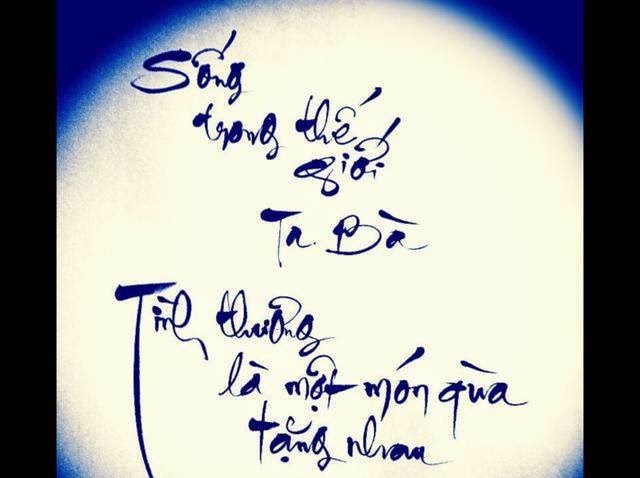 Sống
trong thế
giới
Ta Bà
Tình thương
là một món qùa
tặng nhau